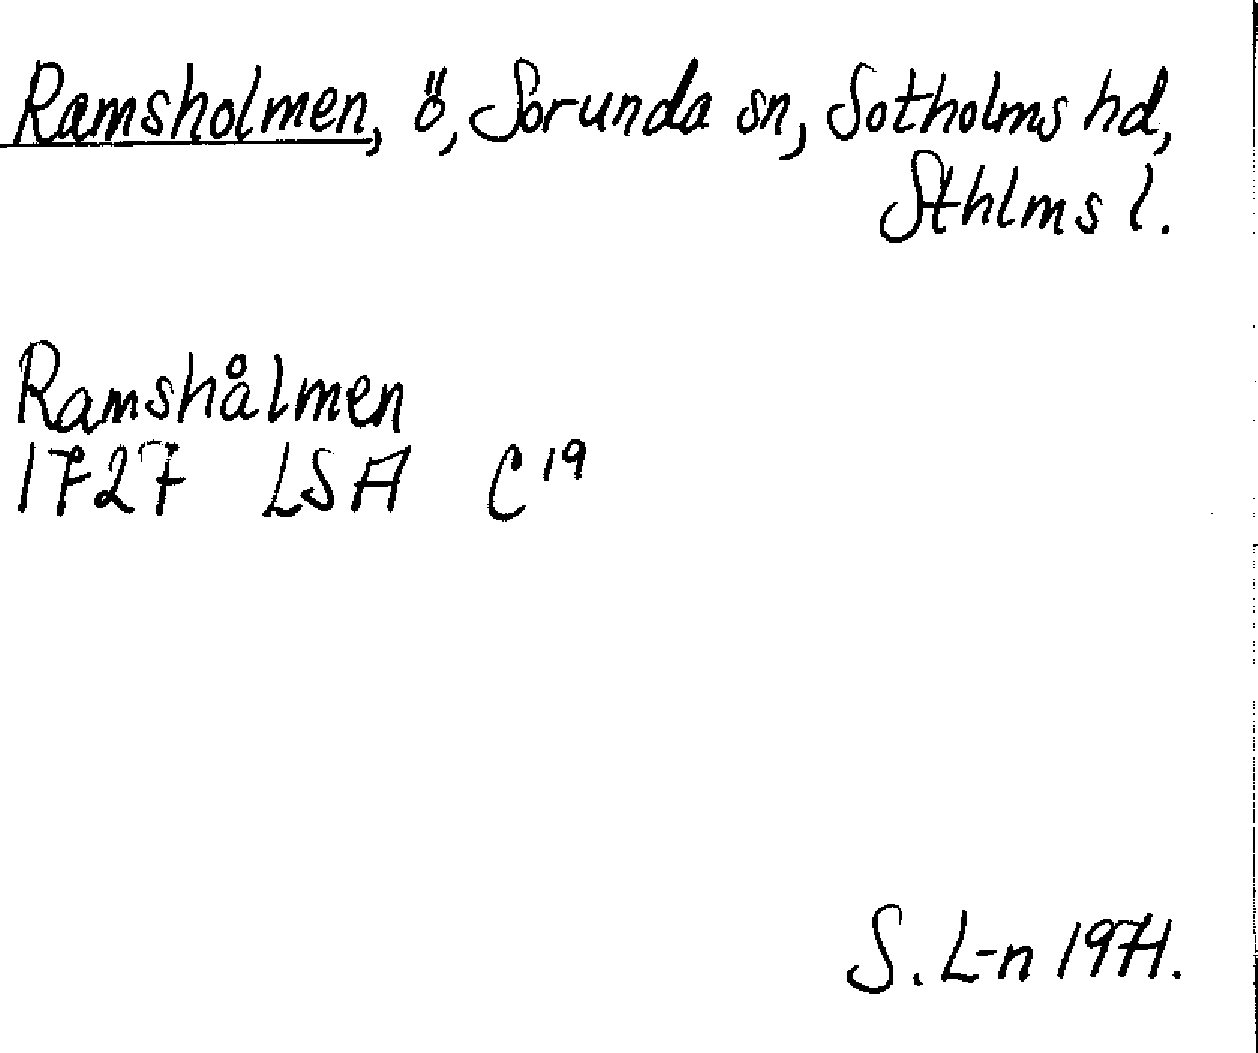 Ramsholmen, ö, Sorunda sn, Sotholms hd,
Sthlms l.
Ramshålmen
1727 LSA C 19
S. L-n 1971.